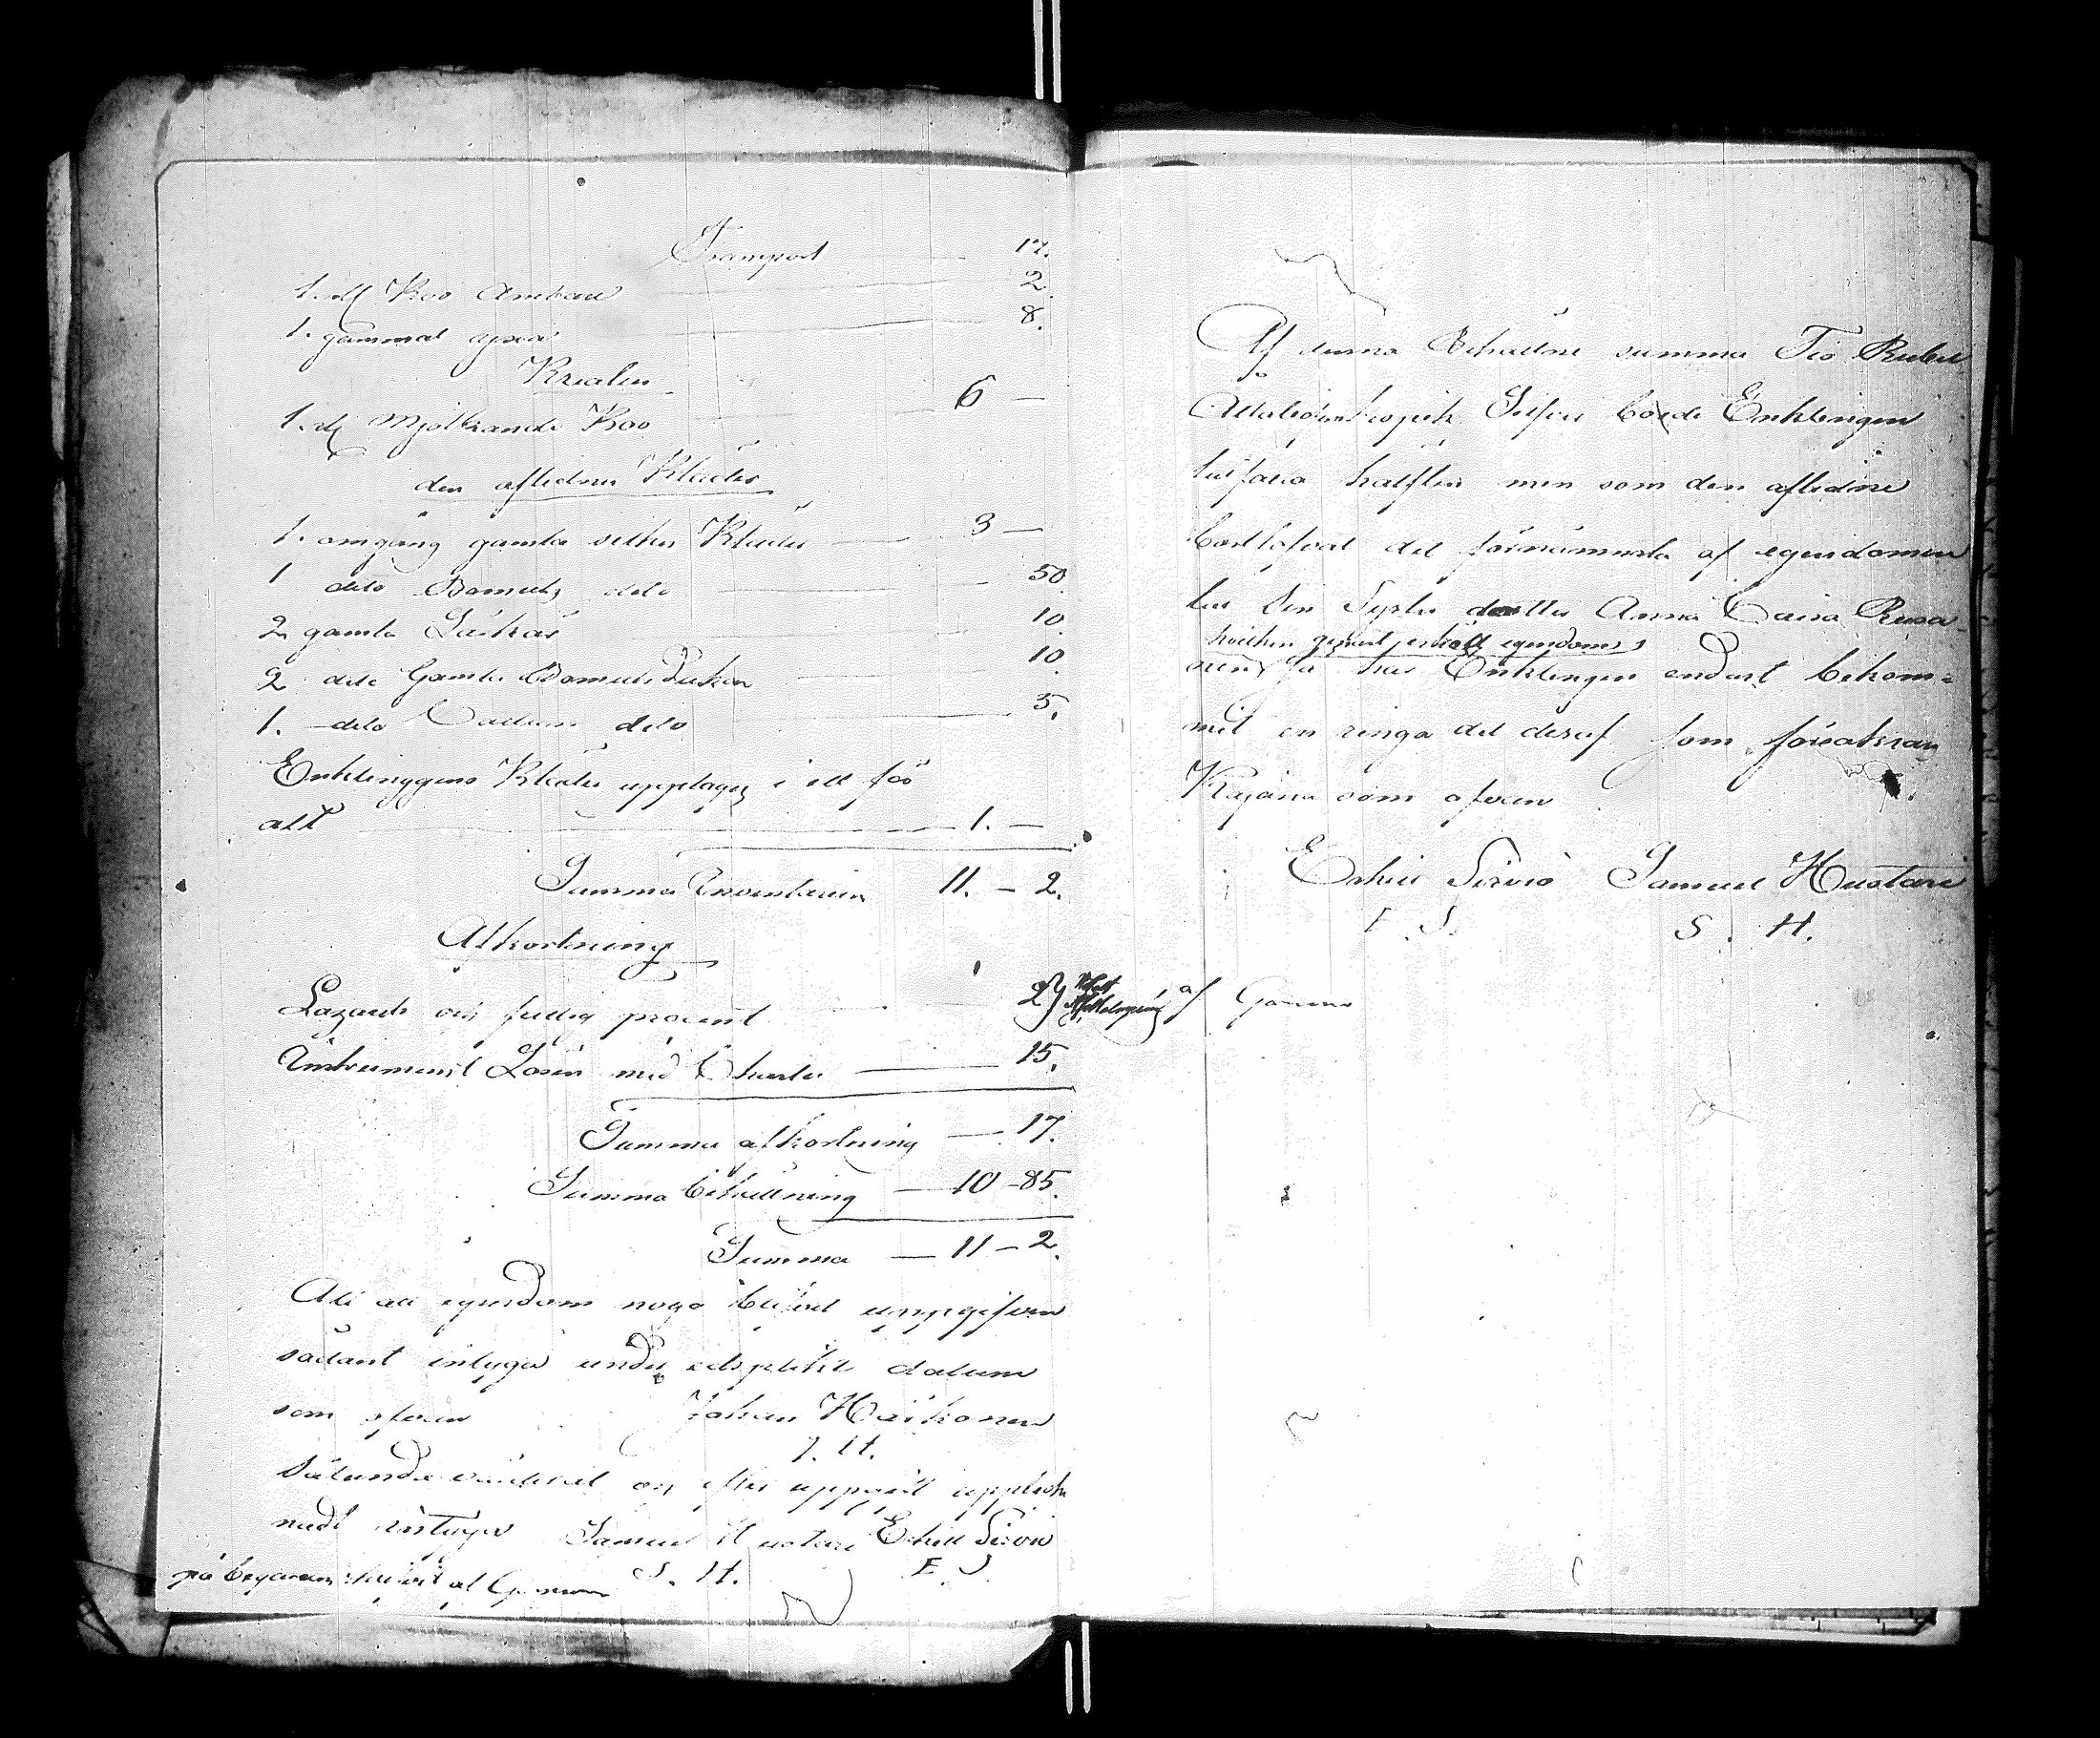 Transport 17.
1. st Koo Ämbare 2.
1. gammal yxa 8.
Kreatur
1. st Mjölkande Koo 6 —
den aflidnes Kläder
1. omgång gamla Kläder 3 —
1 dito Bomulls dito 50
2 gamla 10.
2 dito Gamla Bomulls Dukar 10.
1. dito dito 5.
Enklinggens Kläder upptages i ett för
allt 1. —
Summa Inventarium 11. — 2.
Afkortning
Lazarets och fattig procent 2 af
Instrument Lösen med Charta 15.
Summa afkortning — 17.
Summa behållning — 10 - 85.
Summa — 11 - 2.
Att all egendom noga blifvit uppgifven
sådant intygar under edsplikt datum
som ofvan Johan Heikonen
J. H.
Sålunda värderat och efter uppgift uppteck
nadt intygar Samuel Huotari Erkki Sirviö
på begäran skrifvit af S. H. E. S.
Af denna Behållne summa Tio Rubel
Silfver borde Enklingen
hälften men som den aflidne
bortlofvat det förnämmsta af egendomen
till sin Syster dotter Anna Caisa
hvilken genast erhöll egendomen
så har Enklingen endast bekom=
mit en ringa del deraf som försäkras
Kajana som ofvan
Erkki Sirviö Samuel Huotari
E. S. S. H.